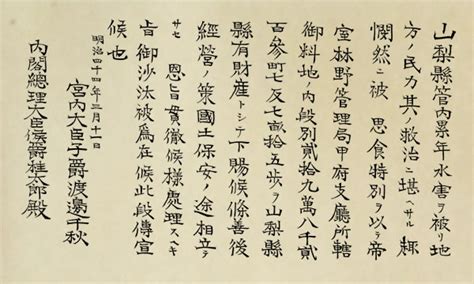 山梨縣管内累年水害ヲ被リ地
方ノ民力其ノ救治ニ堪ヘサル趣
憫然ニ被　思食特別ヲ以テ帝
室林野管理局甲府支廳所轄
御料地ノ内段別貳拾九萬八千貳
百參町七反七畝拾五歩ヲ山梨
縣有財産トシテ下賜候條善後
經營ノ策國土保安ノ途相立テ
サセ　恩旨貫徹候樣處理スヘキ
旨御沙汰被爲在候此段傳宣
候也
明治四十四年三月十一日
宮内大臣子爵渡邊千秋
内閣總理大臣侯爵桂太郎殿